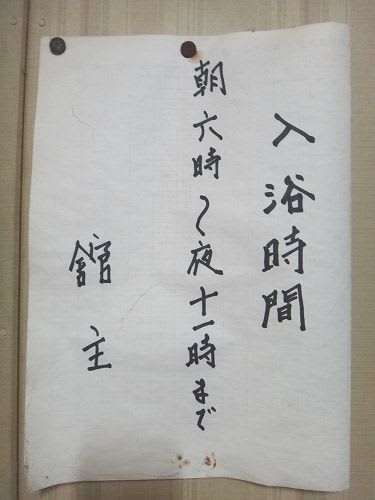 入浴時間
朝六時〜夜十一時まで
舘主